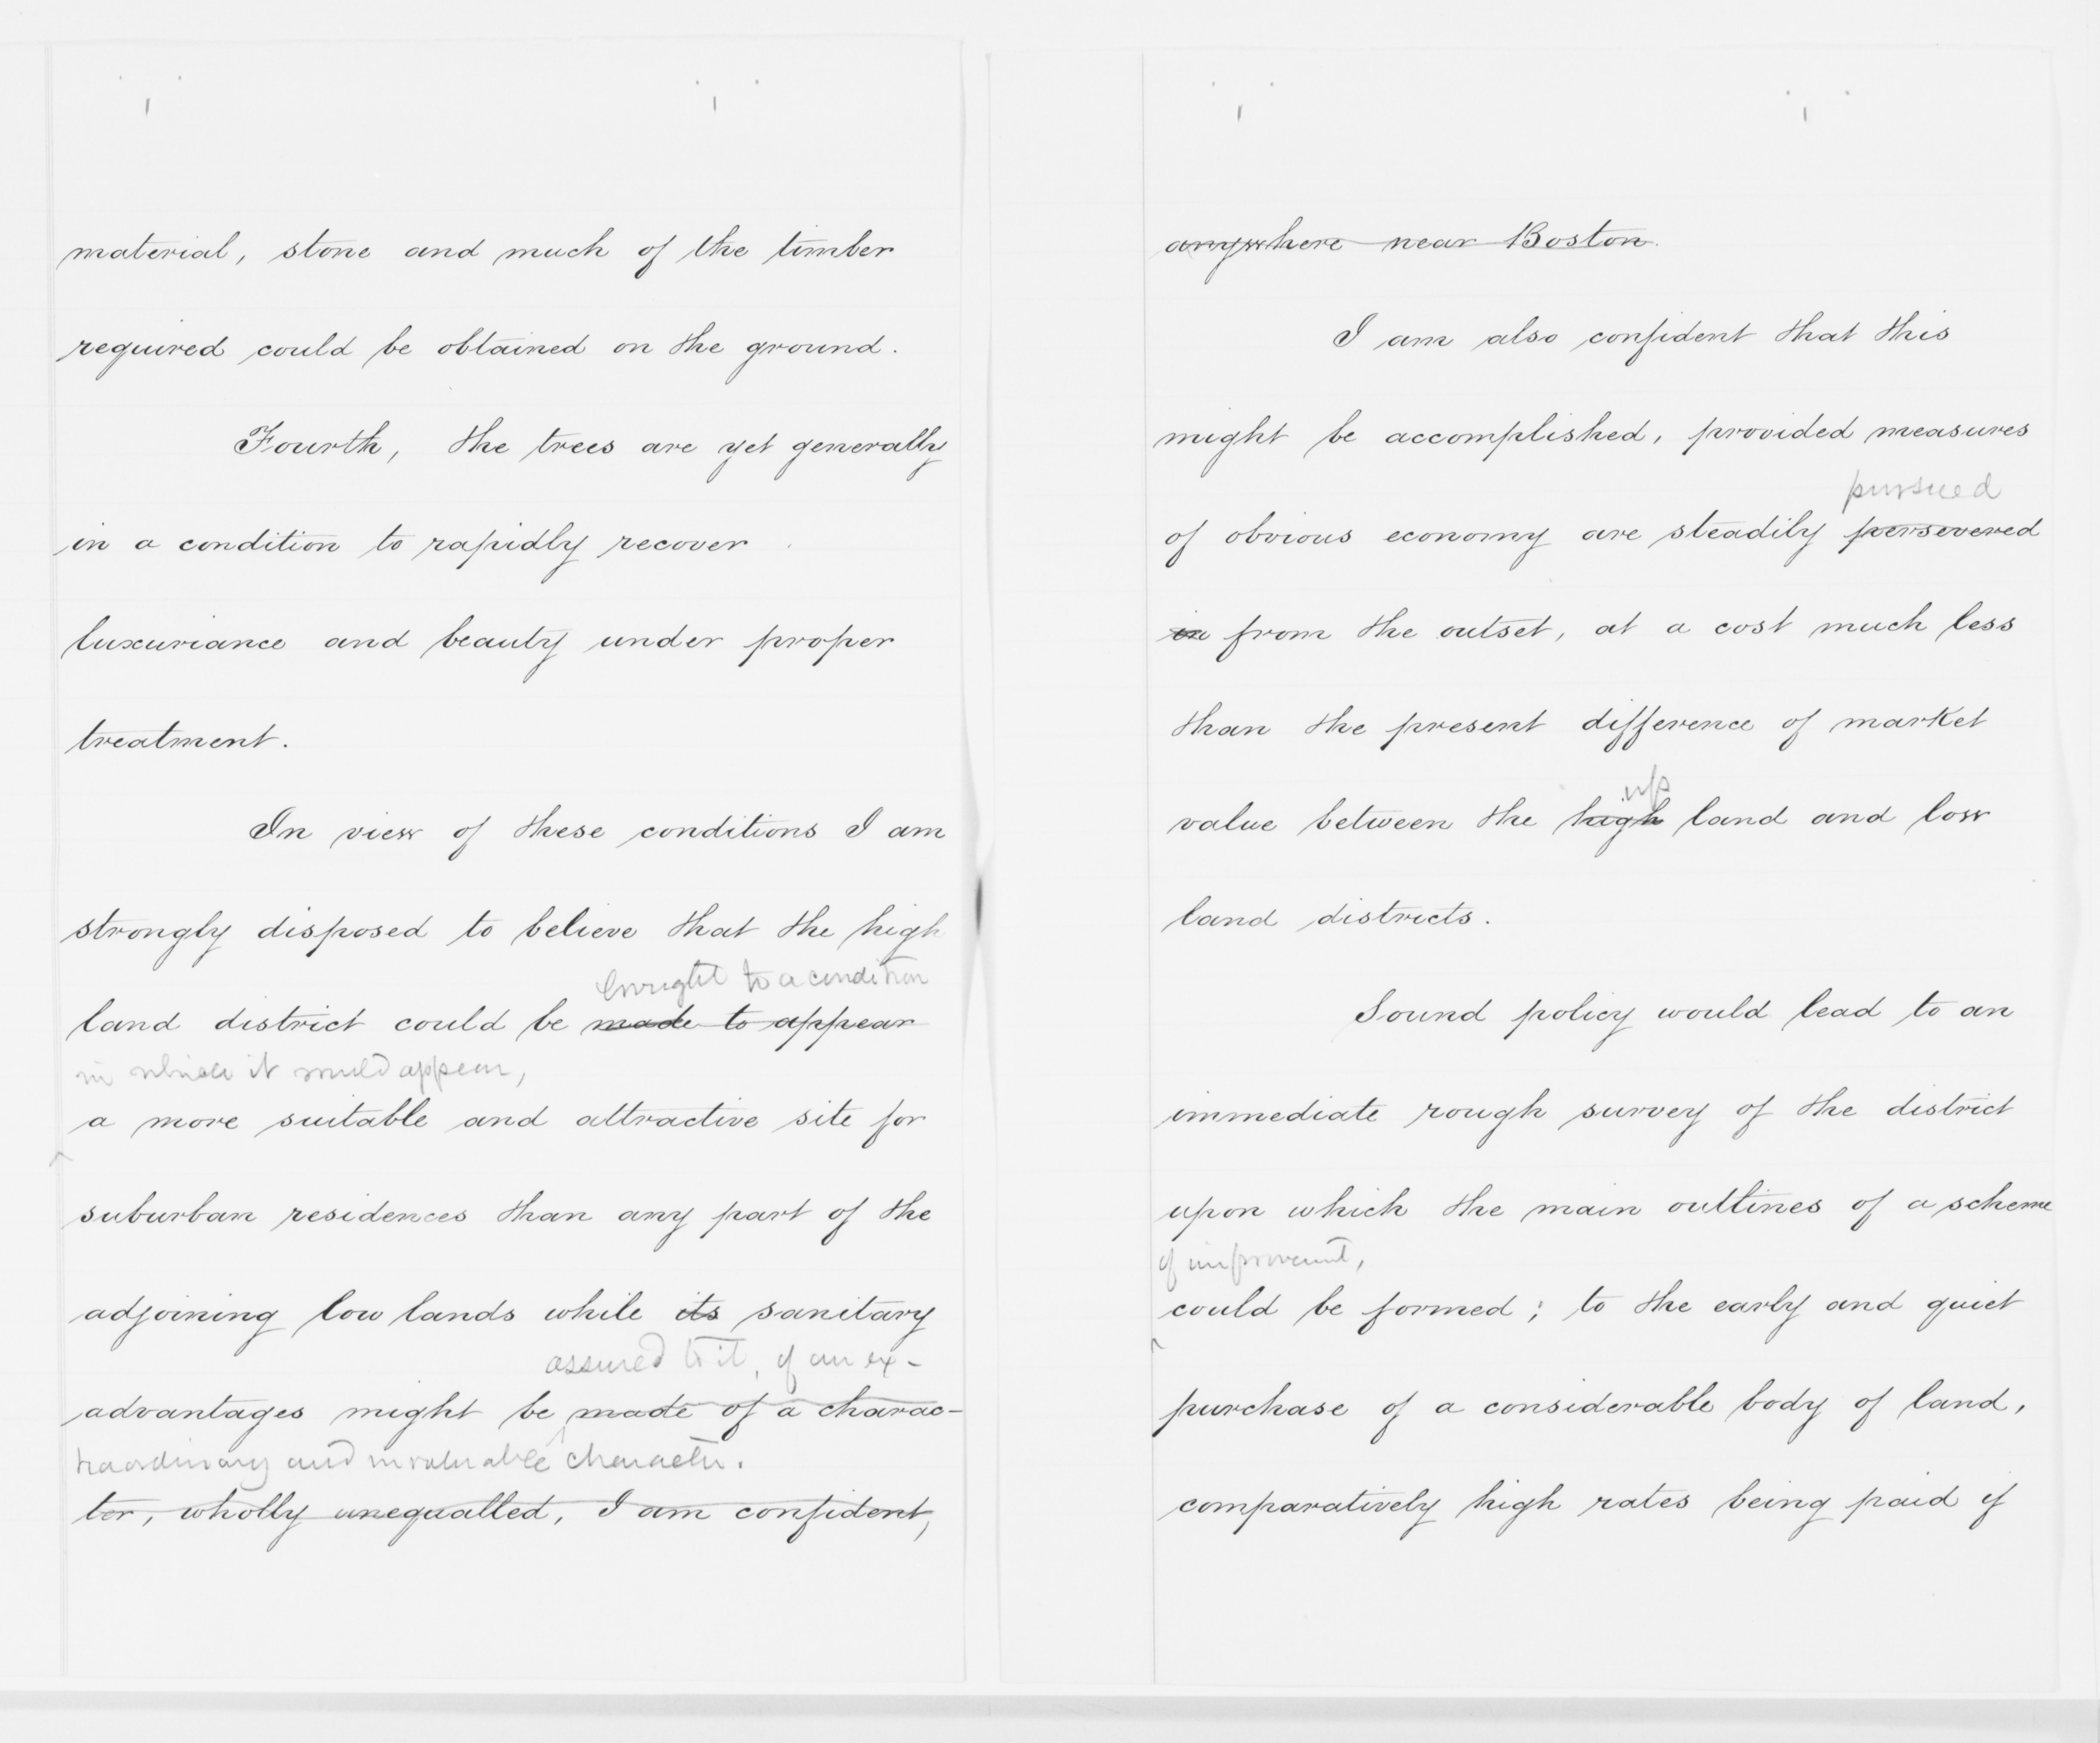 material, stone and much of the timber
required could be obtained on the ground.
Fourth, the trees are yet generally
in a condition to rapidly recover
luxuriance and beauty under proper
treatment.
In view of these conditions I am
strongly disposed to believe that the high
brought to a condition
land district could be made to appear
in which it would appear,
a more suitable and attractive site for
suburban residences than any part of the
adjoining low lands while its sanitary
assured to it, of an ex-
advantages might be made of a charac-
traordinary and invaluable character.
ter, wholly unequalled, I am confident,
anywhere near Boston.
I am also confident that this
might be accomplished, provided measures
pursued
of obvious economy are steadily persevered
in from the outset, at a cost much less
than the present difference of market
up
value between the high land and low
land districts.
Sound policy would lead to an
immediate rough survey of the district
upon which the main outlines of a scheme
of improvement,
could be formed; to the early and quiet
purchase of a considerable body of land,
comparatively high rates being paid if